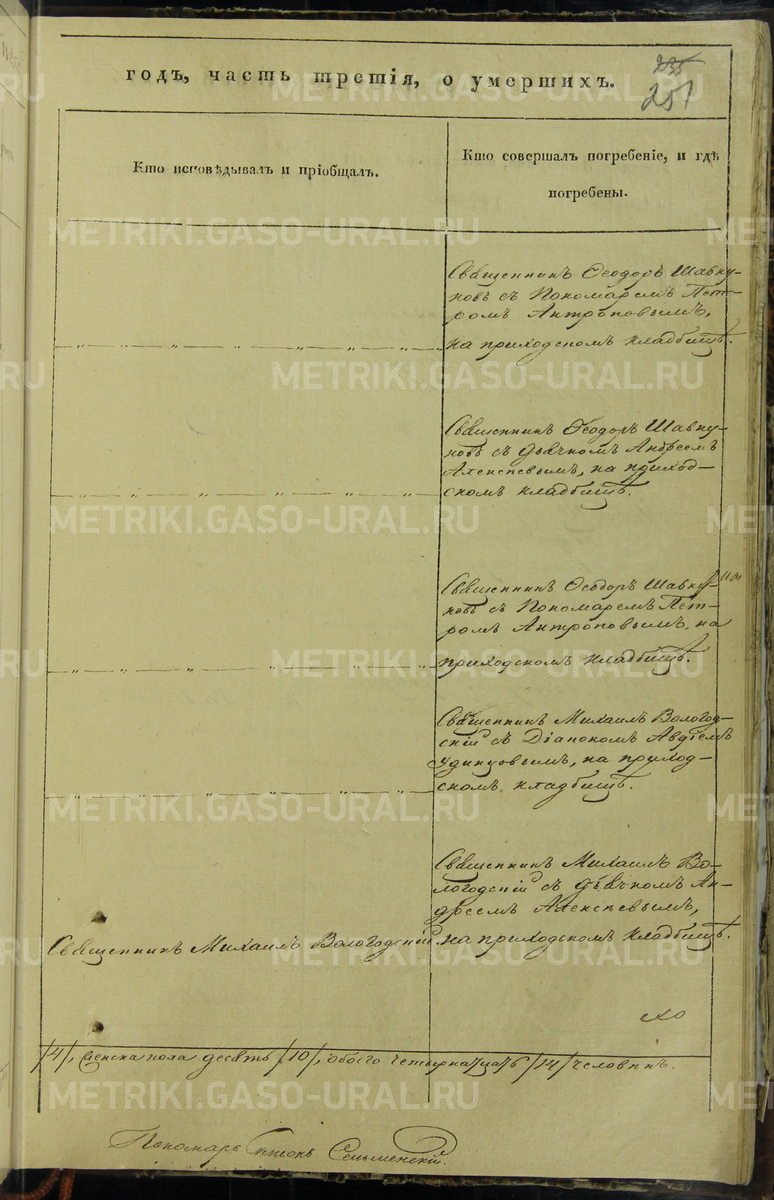 годъ, часть третія, о умершихъ.
235
251
Кто исповѣдывалъ и пріобщалъ.
Кто совершалъ погребеніе, и гдѣ
погребены.
Священникъ Ѳеодоръ Шавку-
новъ съ Пономаремъ Пет-
ромъ Антроповымъ,
на приходскомъ кладбищѣ.
Священникъ Ѳеодоръ Шавку-
новъ съ Дьячкомъ Андреемъ
Алексѣевымъ, на приход-
скомъ кладбищѣ.
Священникъ Ѳеодоръ Шавку-
новъ съ Пономаремъ Пет-
ромъ Антроповымъ, на
приходскомъ кладбищѣ.
Священникъ Михаилъ Вологод-
скій съ Діакономъ Авдіемъ
Удинцовымъ, на приход-
скомъ кладбищѣ.
Священникъ Михаилъ Во-
логодскій съ Дьячкомъ Ан-
дреемъ Алексѣевымъ,
Священникъ Михаилъ Вологодскій на приходскомъ кладбищѣ.
/4/, женска пола десять /10/, обоего четырнадцать /14/ человѣкъ.
Пономарь
METRIKI.GASO-URAL.RU